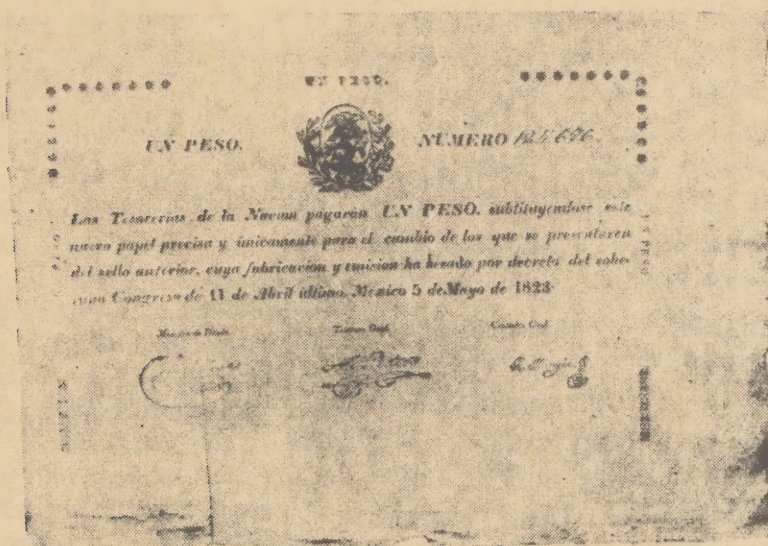 UN PESO.
UN PESO.
NUMERO 125,676
Las Tesorerias de la Nacion pagarán UN PESO, subtituyendose este
nuevo papel precisa y únicamente para el cambio de los que se presentaren
del sello anterior, cuya fabricacion y emision ha cesado por decreto del sobe-
rano Congreso de 11 de Abril último. México 5 de Mayo de 1823